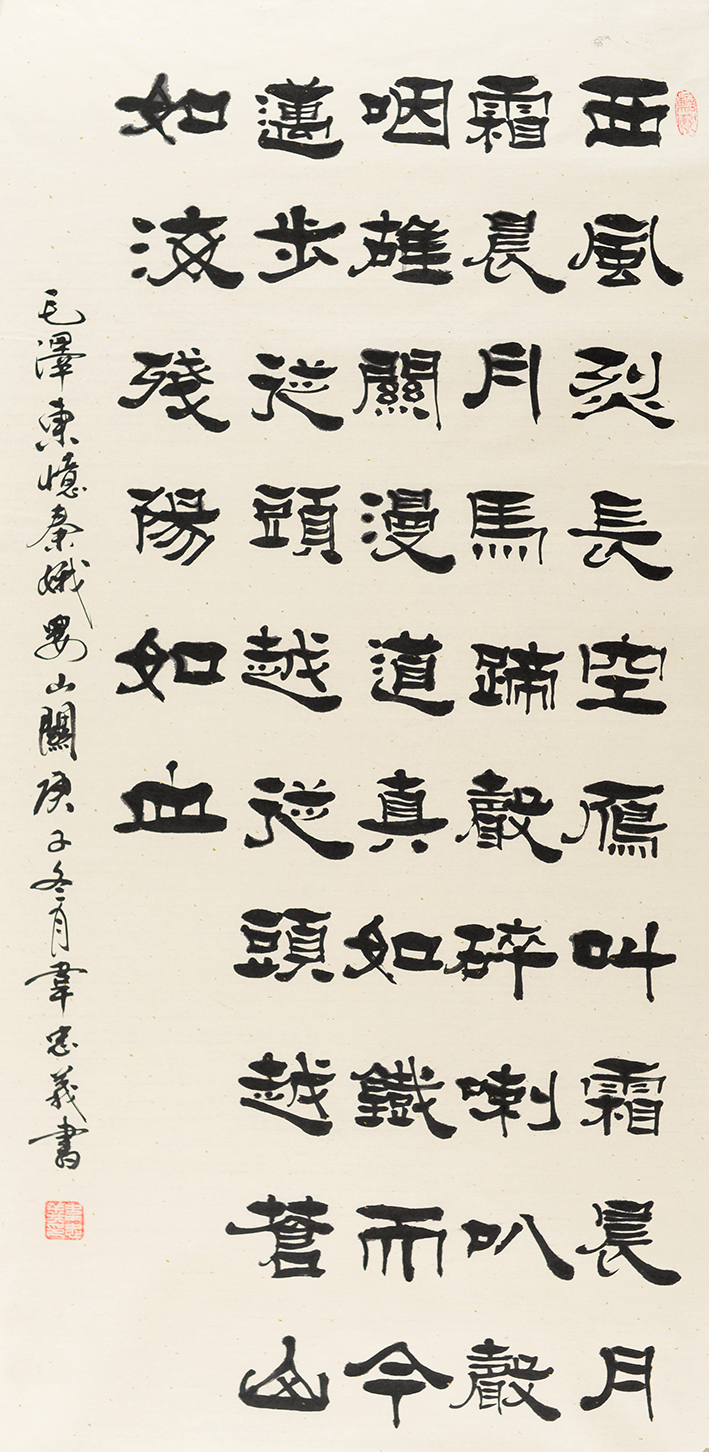 西風烈長空雁叫霜晨月
霜晨月馬蹄聲碎喇叭聲
咽雄關漫道真如鐵而今
邁步從頭越從頭越蒼山
如海殘陽如血
毛澤東憶秦娥婁山關庚子冬月韋忠義書